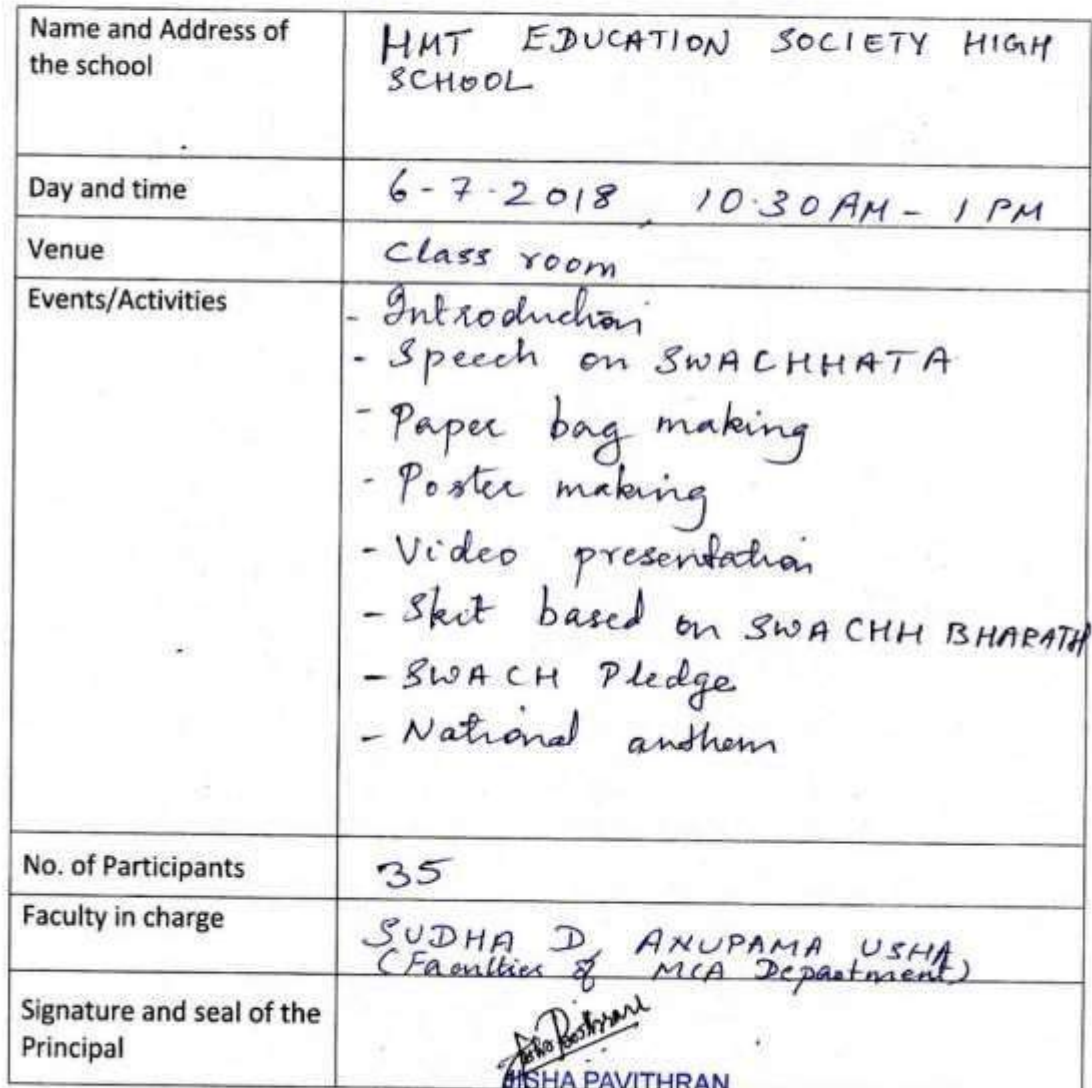 Name and Address of
the school
HMT EDUCATION SOCIETY HIGH
SCHOOL
Day and time
6-7-2018, 10.30 AM - 1 PM
Venue
Class room
Events/Activities
- Introduction
- Speech on SWACHHATA
- Paper bag making
- Poster making
- Video presentation
- Skit based on SWACHH BHARATH
- SWACH Pledge
- National anthem
No. of Participants
35
Faculty in charge
SUDHA D, ANUPAMA USHA
(Faculties of MCA Department)
Signature and seal of the
Principal
JISHA PAVITHRAN